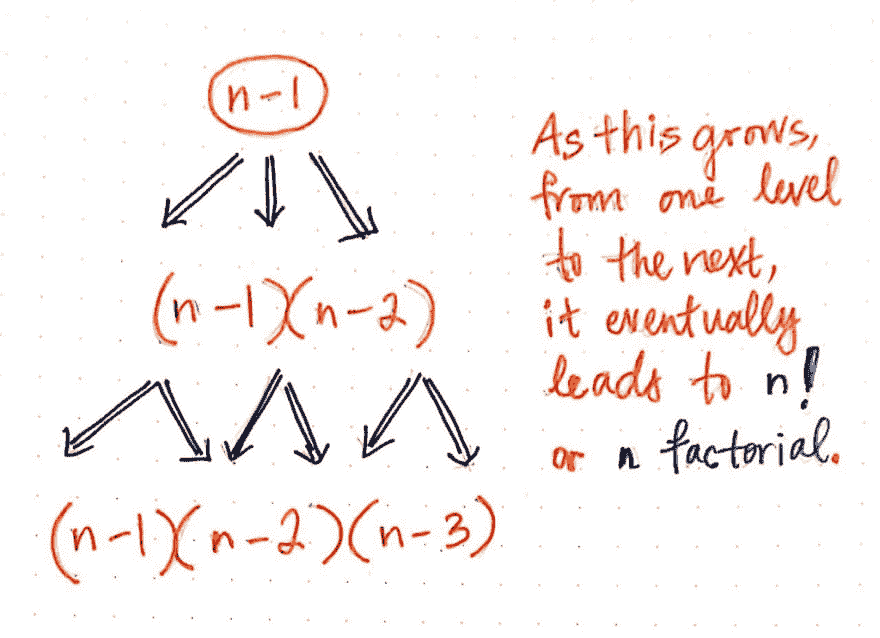 n-1
(n-1)(n-2)
(n-1)(n-2)(n-3)
As this grows,
from one level
to the next,
it eventually
leads to n!
or n factorial.